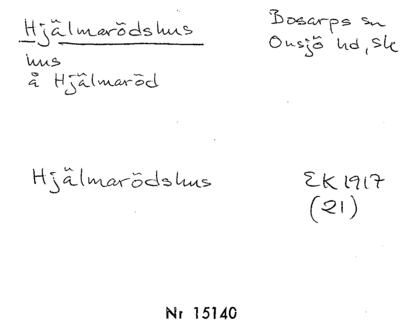 Hjälmarödshus
Bosarps sn
Onsjö hd, Sk
hus
å Hjälmaröd
Hjälmarödshus
EK 1917
(21)
Nr 15140